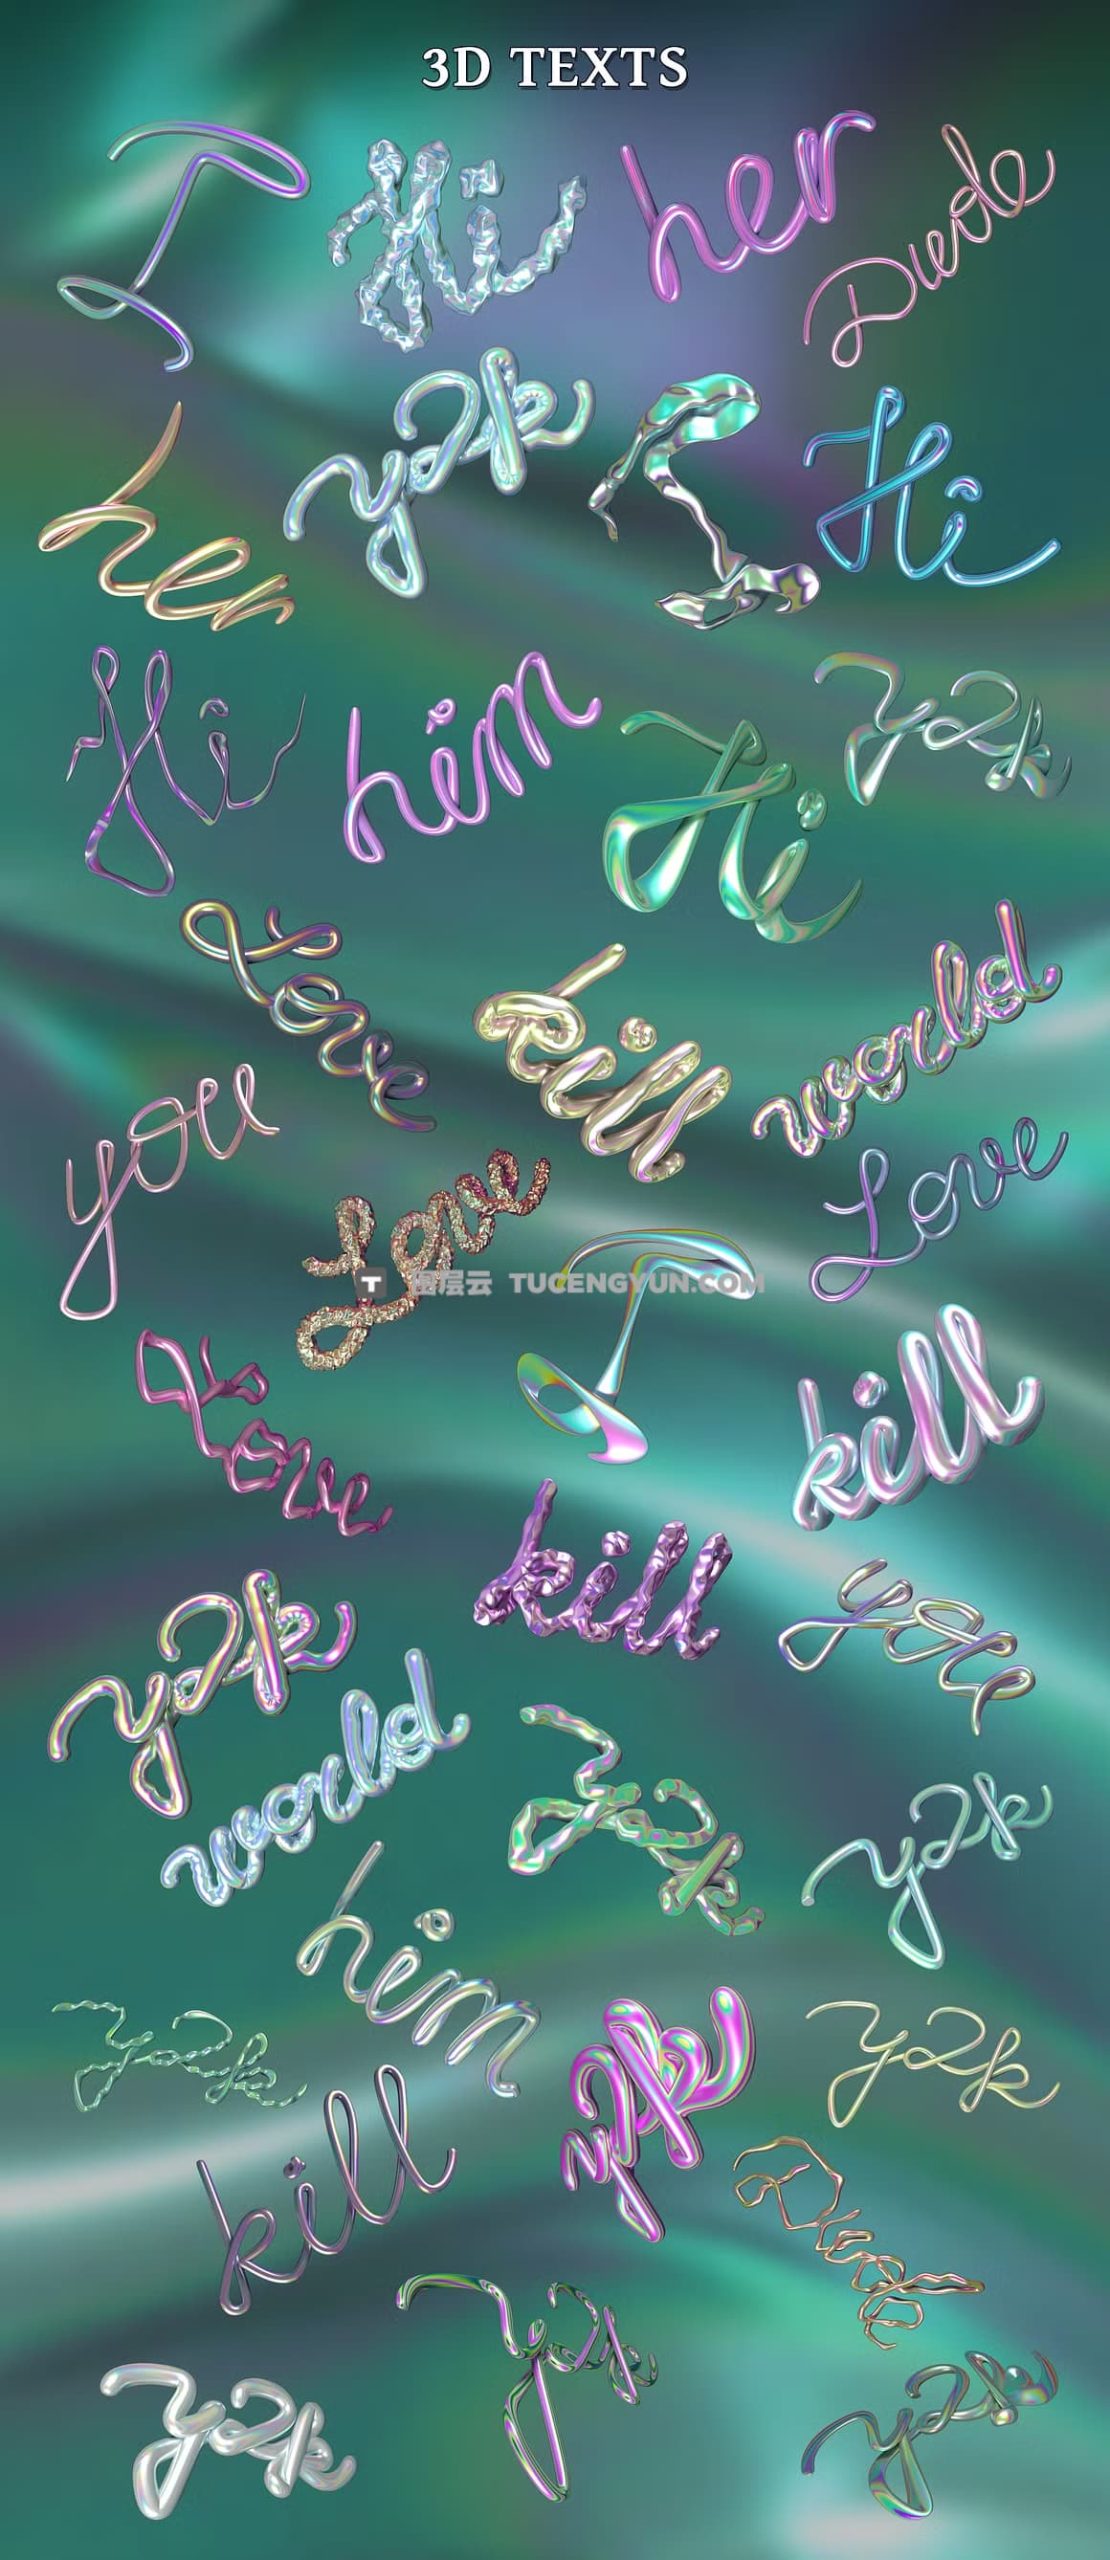 3D TEXTS
I
Hi
her
Dude
y2k
her
I
Hi
Hi
him
y2k
Hi
Love
kill
world
you
Love
Love
图层云 TUCENGYUN.COM
I
kill
Love
kill
you
y2k
world
y2k
y2k
him
y2k
y2k
y2k
kill
Dude
y2k
y2k
y2k